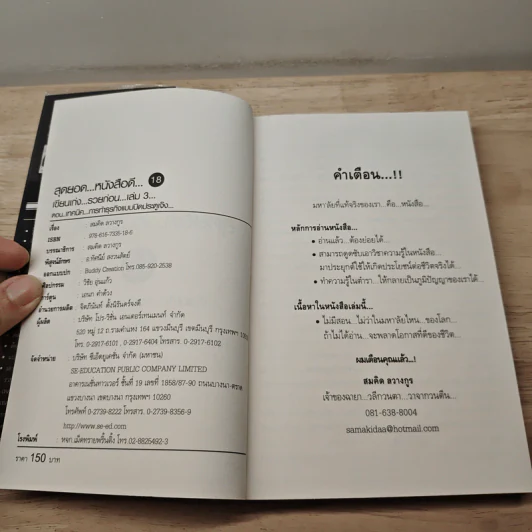 สุดยอด...หนังสือดี... 18
เขียนเก่ง...รวยก่อน...เล่ม 3...
ตอน...เทคนิค...การทำธุรกิจแบบปิดประตูเจ๊ง...
เรื่อง สมคิด ลวางกูร
ISBN 978-616-7335-18-6
บรรณาธิการ สมคิด ลวางกูร
พิสูจน์อักษร อ.ทัศนีย์
ออกแบบปก Buddy Creation โทร.085-920-2538
ศิลปกรรม วิชัย
การ์ตูน เอนก คำด้วง
อำนวยการผลิต
ผู้ผลิต บริษัท โปร-วิชั่น เอนเตอร์เทนเมนท์ จำกัด
520 หมู่ 12 ถ.รามคำแหง 164 แขวงมีนบุรี เขตมีนบุรี กรุงเทพฯ
โทร. 0-2917-6101 , 0-2917-6404 โทรสาร. 0-2917-6102
จัดจำหน่าย บริษัท ซีเอ็ดยูเคชั่น จำกัด (มหาชน)
SE-EDUCATION PUBLIC COMPANY LIMITED
อาคารเนชั่นทาวเวอร์ ชั้นที่ 19 เลขที่ 1858/87-90 ถนนบางนา-ตราด
แขวงบางนา เขตบางนา กรุงเทพฯ 10260
โทรศัพท์ 0-2739-8222 โทรสาร. 0-2739-8356-9
http://www.se-ed.com
โรงพิมพ์ : หจก.เม็ดทรายพริ้นติ้ง โทร.02-8825492-3
ราคา 150 บาท
คำเตือน...!!
มหาลัยที่แท้จริงของเรา...คือ...หนังสือ...
หลักการอ่านหนังสือ...
• อ่านแล้ว...ต้องย่อยได้...
• สามารถดูดซับเอาวิชาความรู้ในหนังสือ...
มาประยุกต์ใช้ให้เกิดประโยชน์ต่อชีวิตจริงได้...
• ทำความรู้ในตำรา...ให้กลายเป็นภูมิปัญญาของเราได้...
เนื้อหาในหนังสือเล่มนี้...
• ไม่มีสอน...ไม่ว่าในมหาลัยไหน...ของโลก...
ถ้าไม่ได้อ่าน...จะพลาดโอกาสที่ดีของชีวิต...
ผมเตือนคุณแล้ว...!
สมคิด ลวางกูร
เจ้าของฉายา...วลีกวนตา...วาจากวนตีน...
081-638-8004
samakidaa@hotmail.com